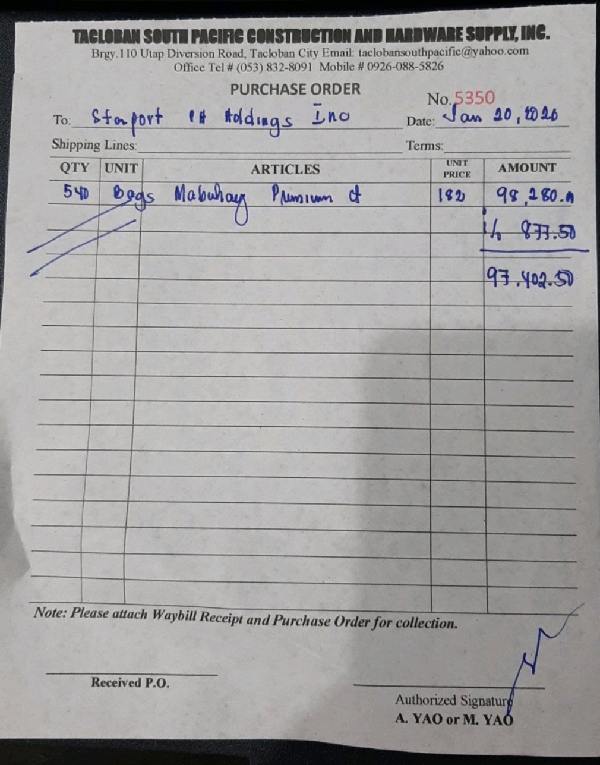 TACLOBAN SOUTH PACIFIC CONSTRUCTION AND HARDWARE SUPPLY, INC.
Brgy.110 Utap Diversion Road, Tacloban City Email: taclobansouthpacific@yahoo.com
Office Tel # (053) 832-8091 Mobile # 0926-088-5826
PURCHASE ORDER
No. 5350
To: Starport PH Holdings Inc Date: Jan 20, 2026
Shipping Lines: Terms:
QTY UNIT ARTICLES UNIT PRICE AMOUNT
540 Bags Mabuhay Premium ct 182 98,280.
877.50
97,402.50
Note: Please attach Waybill Receipt and Purchase Order for collection.
Received P.O.
Authorized Signature
A. YAO or M. YAO